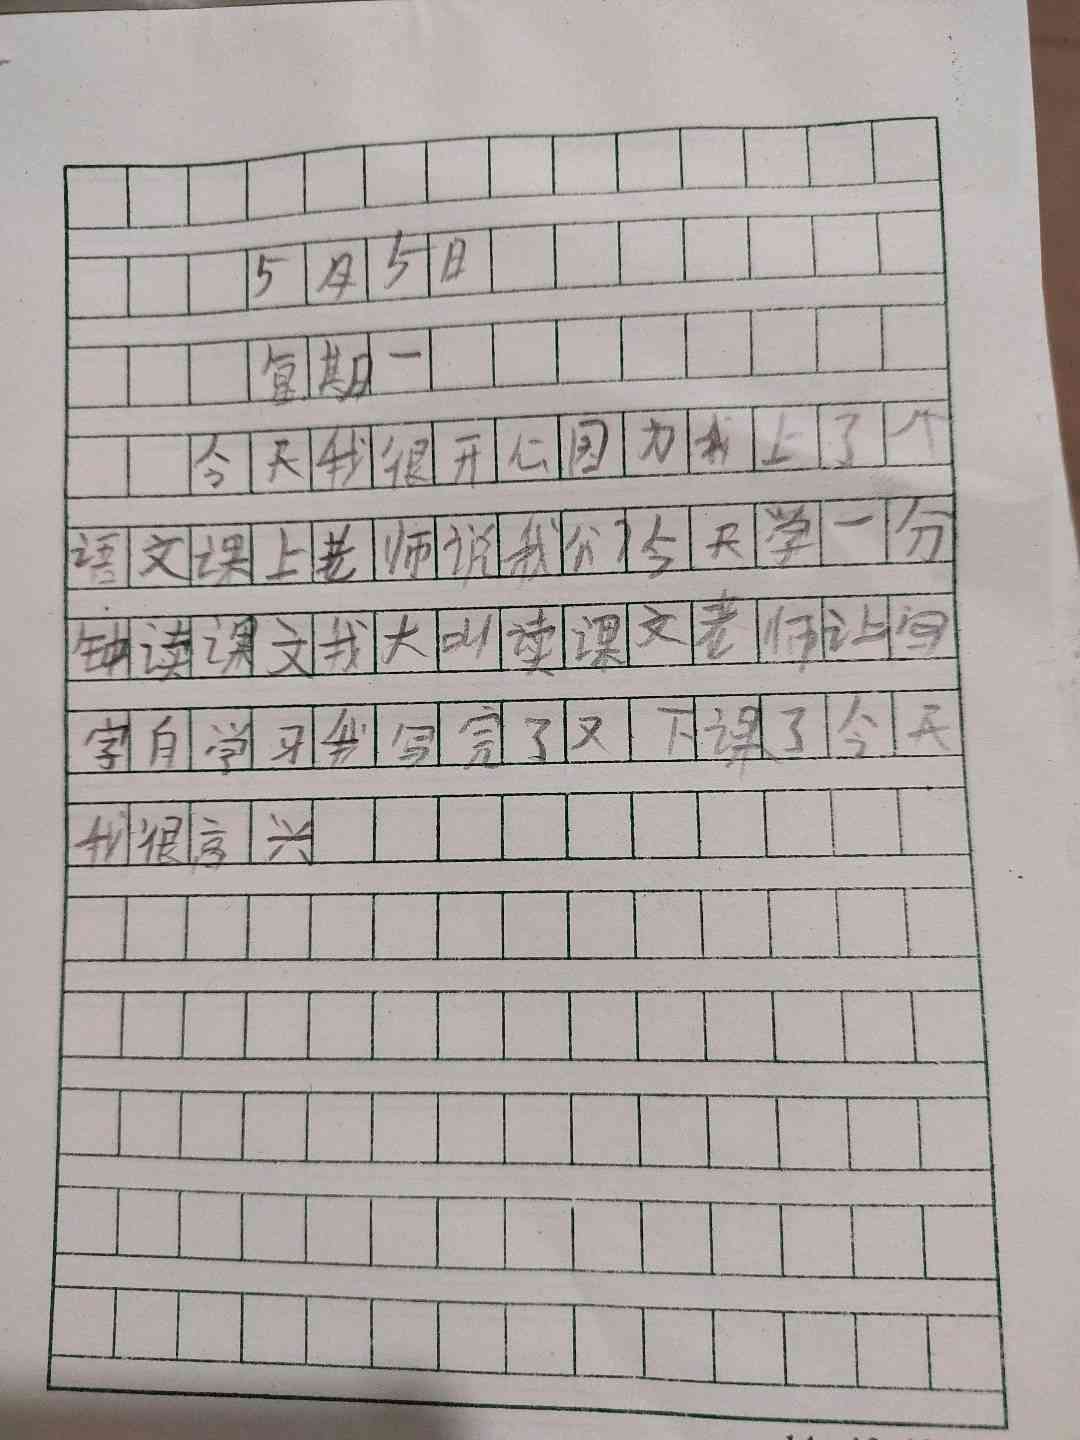 5月5日
星期一
今天我很开心因为我上了个
语文课上老师说我们今天学一分
钟读课文我大叫读课文老师让写
字自学习我写完了又下课了今天
我很高兴